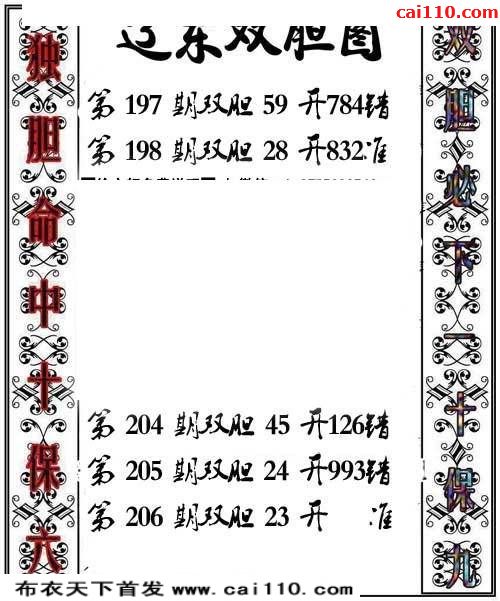 cai110.com
辽东双胆图
第 197 期双胆 59 开784错
第 198 期双胆 28 开832准
第 204 期双胆 45 开126错
第 205 期双胆 24 开993错
第 206 期双胆 23 开 准
独胆命中十保六
双胆必下一十保九
布衣天下首发 www.cai110.com